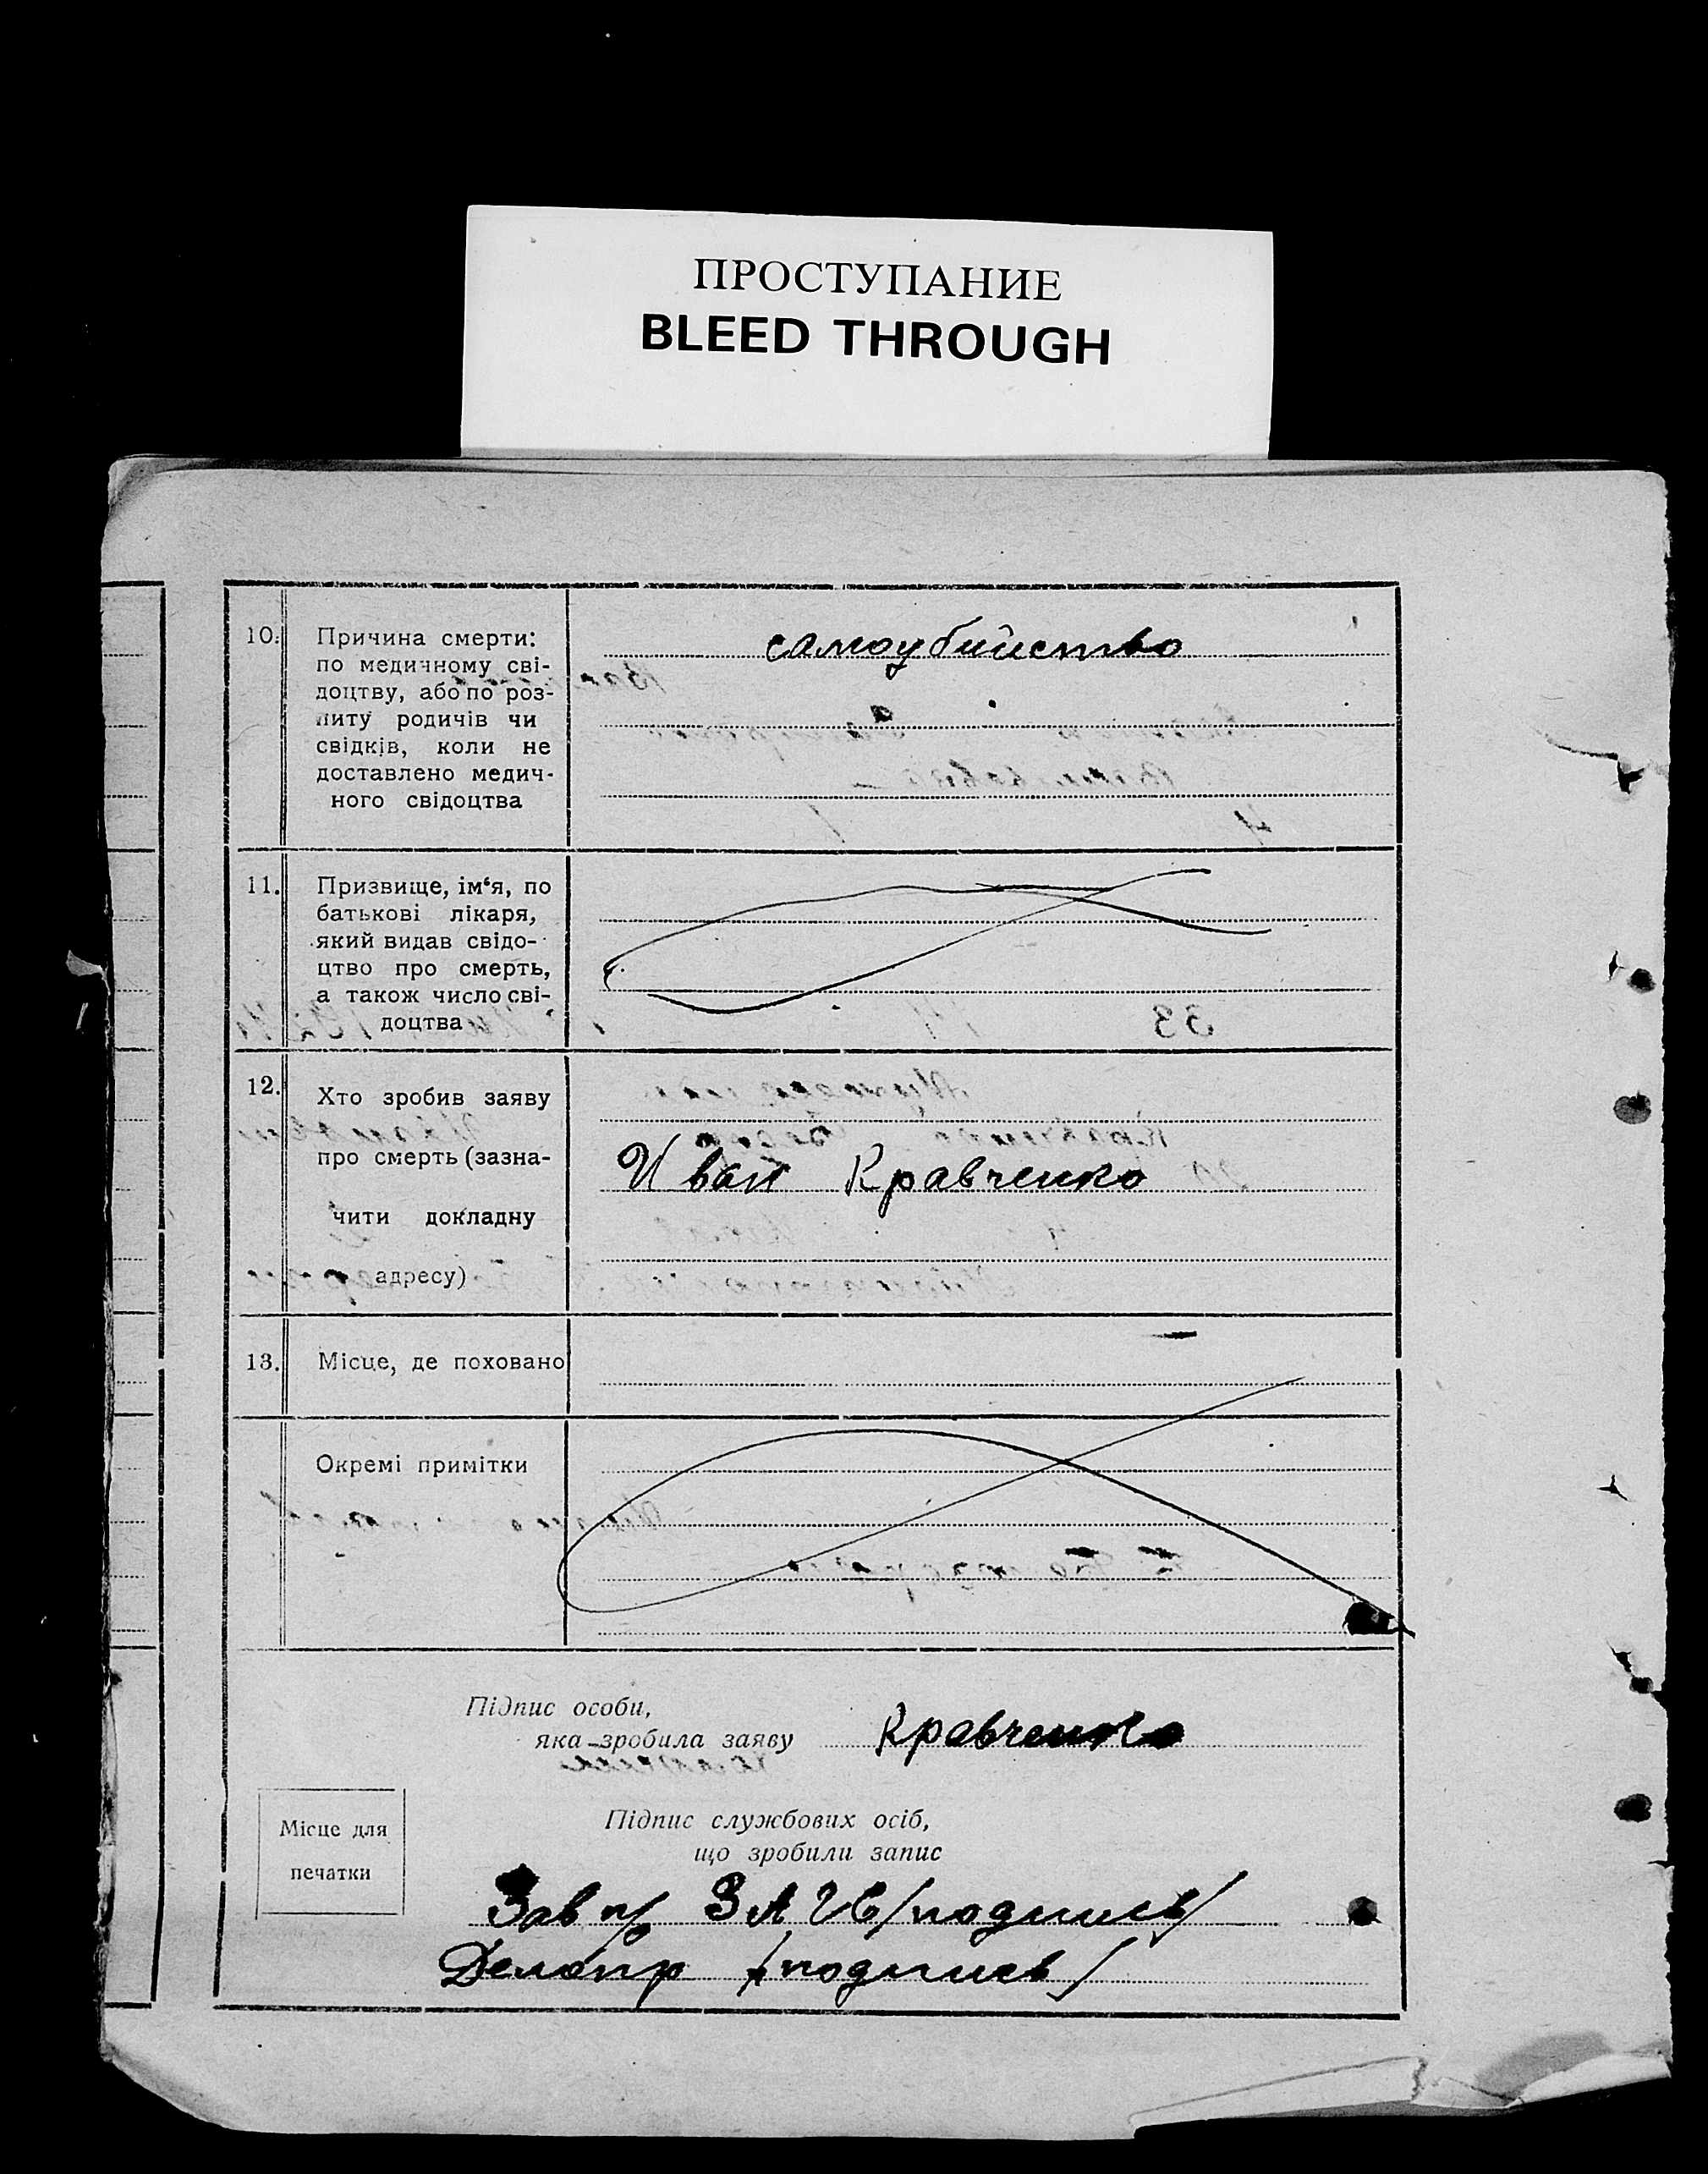 ПРОСТУПАНИЕ
BLEED THROUGH
10. Причина смерти: самоубийство
по медичному сві-
доцтву, або по роз-
питу родичів чи
свідків, коли не
доставлено медич-
ного свідоцтва
11. Призвище, ім‘я, по
батькові лікаря,
який видав свідо-
цтво про смерть,
а також число сві-
доцтва
33
12. Хто зробив заяву
про смерть (зазна- Иван Кравченко
чити докладну
адресу)
13. Місце, де поховано
Окремі примітки
Підпис особи,
яка зробила заяву Кравченко
Місце для
печатки
Підпис службових осіб,
що зробили запис
Зав п/ ЗАГС /подпись/
Делопр /подпись/